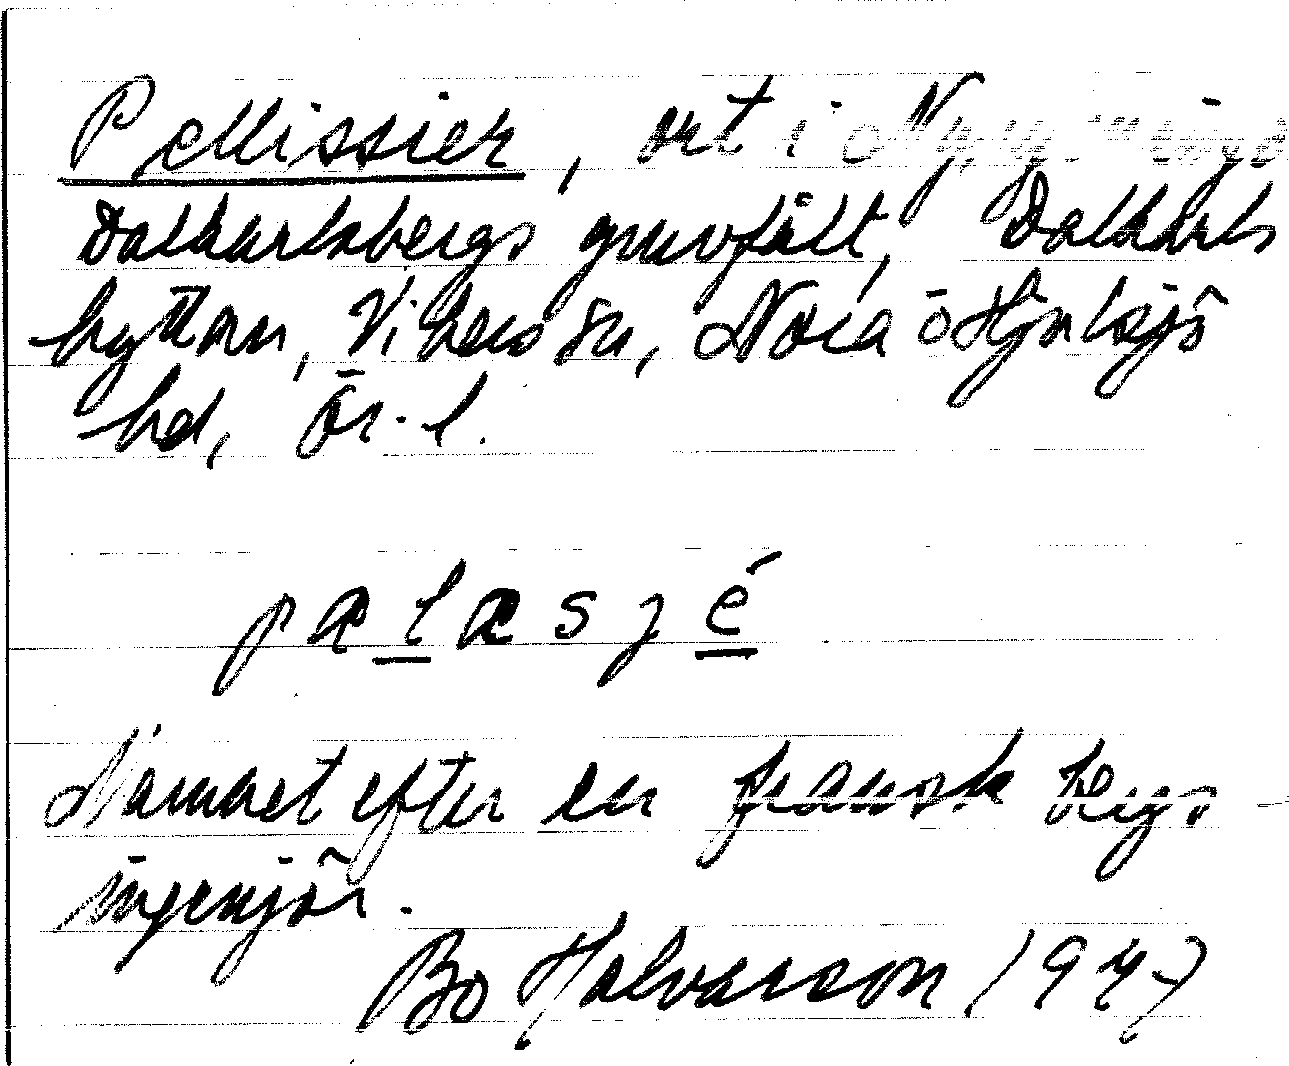 Pellissier, ort i Ny
Dalkarlsbergs gruvfält, Dalkarls
hyttan, Vikers sn, Nora o Hjulsjö
hd, Ör. l.
pælæsjé
Namnet efter en fransk bergs-
ingenjör.
Bo Halvarson 1947